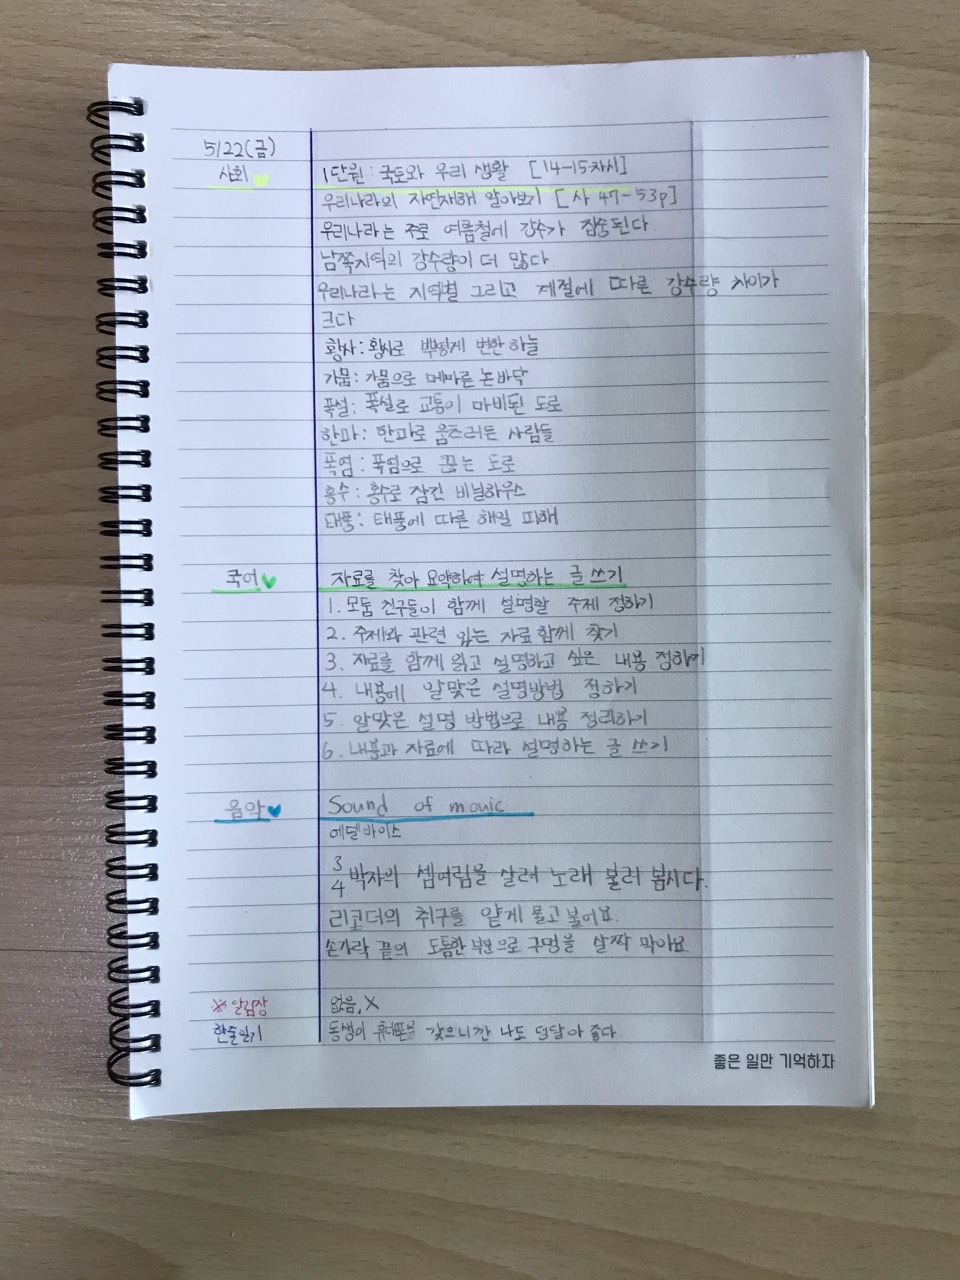 5/22(금)
사회 1단원 : 국토와 우리 생활 [14-15차시]
우리나라의 자연재해 알아보기 [사 47-53p]
우리나라는 주로 여름철에 강수가 집중된다
남쪽지역의 강수량이 더 많다
우리나라는 지역별 그리고 계절에 따른 강수량 차이가
크다
황사 : 황사로 뿌옇게 변한 하늘
가뭄 : 가뭄으로 메마른 논바닥
폭설 : 폭설로 교통이 마비된 도로
한파 : 한파로 움츠러든 사람들
폭염 : 폭염으로 끓는 도로
홍수 : 홍수로 잠긴 비닐하우스
태풍 : 태풍에 따른 해일 피해
국어 자료를 찾아 요약하여 설명하는 글 쓰기
1. 모둠 친구들이 함께 설명할 주제 정하기
2. 주제와 관련 있는 자료 함께 찾기
3. 자료를 함께 읽고 설명하고 싶은 내용 정하기
4. 내용에 알맞은 설명방법 정하기
5. 알맞은 설명 방법으로 내용 정리하기
6. 내용과 자료에 따라 설명하는 글 쓰기
음악 Sound of mouic
에델바이스
3/4 박자의 셈여림을 살려 노래 불러 봅시다.
리코더의 취구를 얕게 물고 불어요.
손가락 끝의 도톰한 부분으로 구멍을 살짝 막아요
※ 알림장 없음, X
한줄일기 동생이 휴대폰을 갖으니깐 나도 덩달아 좋다
좋은 일만 기억하자